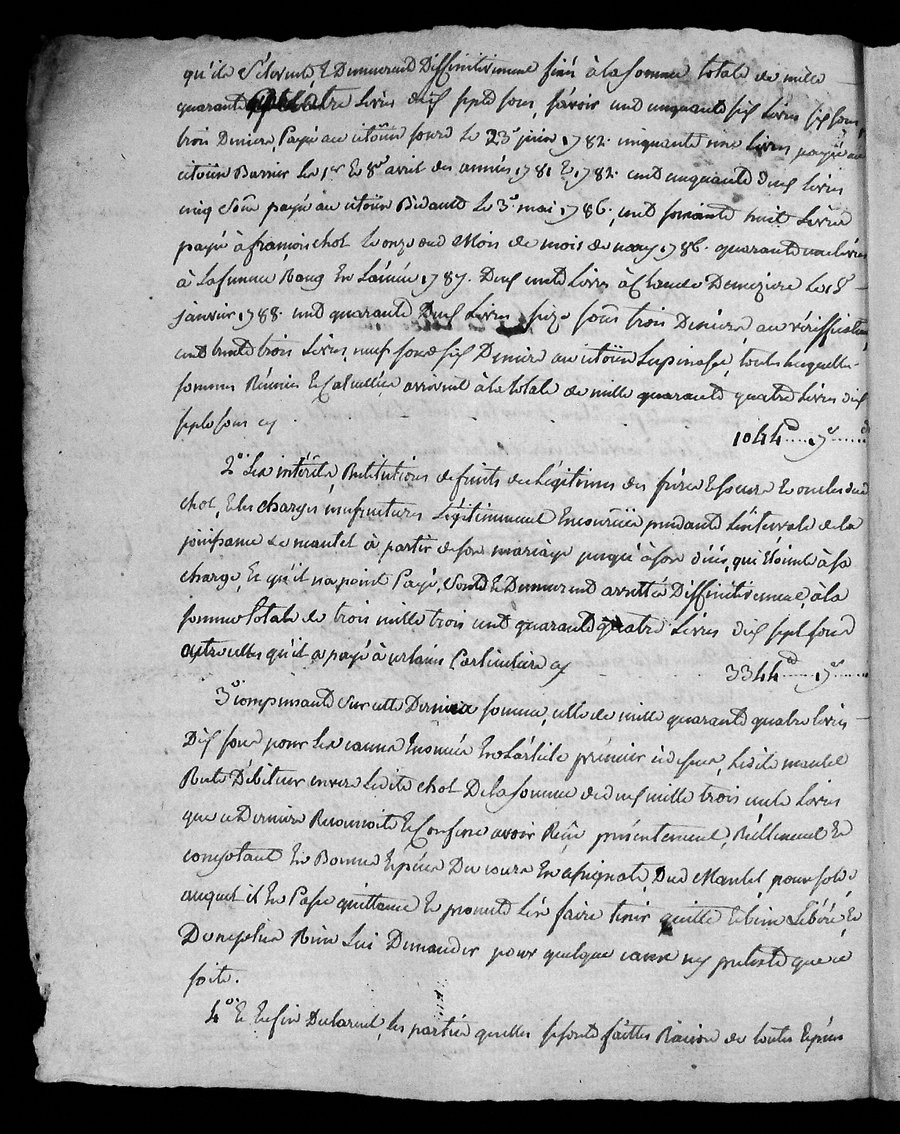 qu'ils s'élevent & Demeurent Diffinitivement fixés à la somme totale de mille
quarante quatre Livres dix sept sous, sçavoir cent cinquante six Livres six sous
trois Deniers, Payé au citoïen le 23e juin 1782. cinquante une Livres payés au
citoïen Barrier Les 1er Et 8e avril des années 1781 Et 1782. cent cinquante deux Livres
cinq sous payé au citoïen Bidault Le 3e mai 1786, cent soixante huit Livres
payé à françois chol Le onze du Mois de mois de mars 1786. quarante une livres
à La femme En L'année 1787. Deux cents Livres à Claude Le 15
janvier 1788. cent quarante Deux Livres seize sous trois Deniers au vériffication
cent trente trois Livres neuf sous six Deniers au citoïen Lupinasse, toutes lesquelles
sommes Réunies Et Calcullées arrivent à la totale de mille quarante quatre Livres dix
sept sous cy 1044 .... 17s ......
2° Les intérêts, Restitutions de fruits des Légitimes des frères Et soeurs Et oncles dud
chol, Et les charges usufructures Légitimement Encourües pendant L'intervale de la
joüissance de mantel à partir de son mariage jusqu'à son décès, qui étoient à sa
charge, Et qu'il n'a point Payé, Sont Et Demeurent arrettés Diffinitivement, à la
somme Totale de trois mille trois cent quarante quatre Livres dix sept sous
outre celles qu'il a payé à certains Particuliers cy 3344 .... 17s ......
3° compensant sur cette Derniere somme, celle de mille quarante quatre Livres
Dix sous pour les causes Enoncées En L'article premier ci dessus, Ledit mantel
Reste Débiteur envers Ledit chol De la somme de deux mille trois cents Livres
que ce Dernier Reconnoit Et Confesse avoir Reçû présentement, Réellement Et
comptant En Bonnes Espèces Du cours En assignats, Dud Mantel pour solde
auquel il En Passe quittance Et promet L'en faire tenir quitte Et bien Libéré, Et
De ne plus Rien Lui Demander pour quelque cause ny pretexte que ce
soit.
4° Et Enfin Declarent les parties qu'elles se sont faittes Raison de toutes Espèces